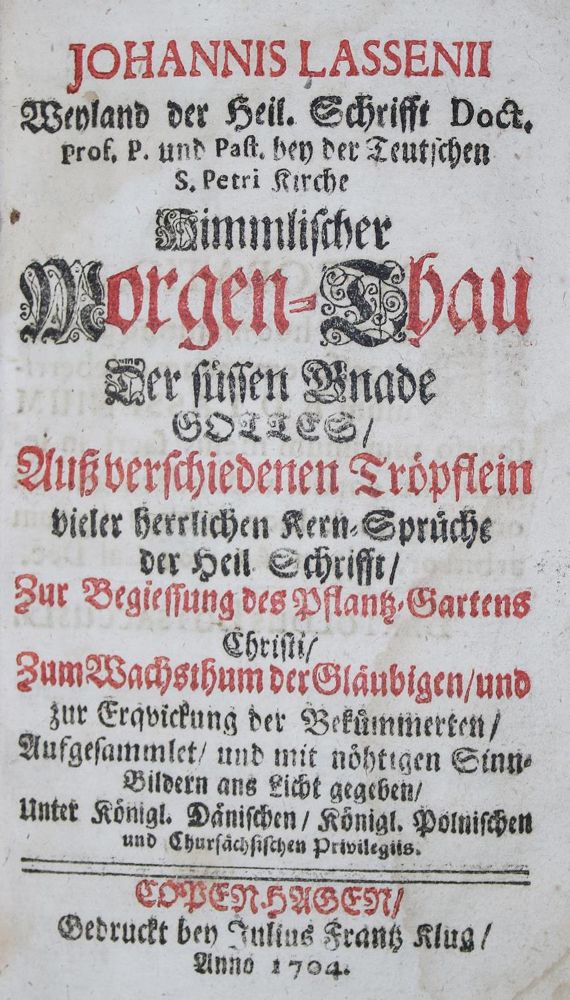 JOHANNIS LASSENII
Weyland der Heil. Schrifft Doct.
Prof. P. und Past. bey der Teutschen
S. Petri Kirche
Himmlischer
Morgen-Thau
Der süssen Gnade
GOTTES/
Auß verschiedenen Tröpflein
vieler herrlichen Kern-Sprüche
der Heil Schrifft/
Zur Begiessung des Pflantz-Gartens
Christi/
Zum Wachsthum der Gläubigen/und
zur Erqvickung der Bekümmerten/
Aufgesammlet/ und mit nöhtigen Sinn-
Bildern ans Licht gegeben/
Unter Königl. Dänischen/ Königl. Polnischen
und Chursächsischen Privilegiis.
COPENHAGEN/
Gedruckt bey Julius Frantz Klug/
Anno 1704.